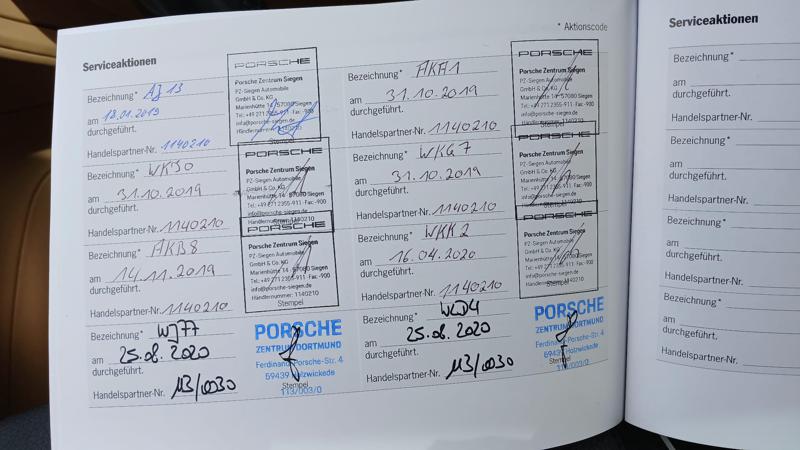 * Aktionscode
Serviceaktionen
Bezeichnung* AJ 13
am 18.01.2019
durchgeführt.
Handelspartner-Nr. 1140210
PORSCHE
Porsche Zentrum Siegen
PZ-Siegen Automobile
GmbH & Co. KG
Marienhütte 14 · 57080 Siegen
Tel.: +49 271 2355-911 · Fax: -900
info@porsche-siegen.de
Händlernummer: 1140210
Bezeichnung* AKA1
am 31.10.2019
durchgeführt.
Handelspartner-Nr. 1140210
PORSCHE
Porsche Zentrum Siegen
PZ-Siegen Automobile
GmbH & Co. KG
Marienhütte 14 · 57080 Siegen
Tel.: +49 271 2355-911 · Fax: -900
info@porsche-siegen.de
Händlernummer: 1140210
Stempel
Bezeichnung*
am 31.10.2019
durchgeführt.
Handelspartner-Nr. 1140210
PORSCHE
Porsche Zentrum Siegen
PZ-Siegen Automobile
GmbH & Co. KG
Marienhütte 14 · 57080 Siegen
Tel.: +49 271 2355-911 · Fax: -900
info@porsche-siegen.de
Händlernummer: 1140210
Bezeichnung* WKG 7
am 31.10.2019
durchgeführt.
Handelspartner-Nr. 1140210
PORSCHE
Porsche Zentrum Siegen
PZ-Siegen Automobile
GmbH & Co. KG
Marienhütte 14 · 57080 Siegen
Tel.: +49 271 2355-911 · Fax: -900
info@porsche-siegen.de
Stempel
Bezeichnung* AKB8
am 14.11.2019
durchgeführt.
Handelspartner-Nr. 1140210
PORSCHE
Porsche Zentrum Siegen
PZ-Siegen Automobile
GmbH & Co. KG
Marienhütte 14 · 57080 Siegen
Tel.: +49 271 2355-911 · Fax: -900
info@porsche-siegen.de
Händlernummer: 1140210
Stempel
Bezeichnung* WKK 2
am 16.04.2020
durchgeführt.
Handelspartner-Nr. 1140210
PORSCHE
Porsche Zentrum Siegen
PZ-Siegen Automobile
GmbH & Co. KG
Marienhütte 14 · 57080 Siegen
Tel.: +49 271 2355-911 · Fax: -900
info@porsche-siegen.de
Händlernummer: 1140210
Stempel
Bezeichnung*
am 25.08.2020
durchgeführt.
Handelspartner-Nr. 113/0030
PORSCHE
ZENTRUM DORTMUND
Ferdinand-Porsche-Str. 4
59439 Holzwickede
Stempel
113/003/0
Bezeichnung*
am 25.08.2020
durchgeführt.
Handelspartner-Nr. 113/0030
PORSCHE
ZENTRUM DORTMUND
Ferdinand-Porsche-Str. 4
59439 Holzwickede
Stempel
113/003/0
Serviceaktionen
Bezeichnung*
am
durchgeführt.
Handelspartner-Nr.
Bezeichnung*
am
durchgeführt.
Handelspartner-Nr.
Bezeichnung*
am
durchgeführt.
Handelspartner-Nr.
Bezeichnung*
am
durchgeführt.
Handelspartner-Nr.